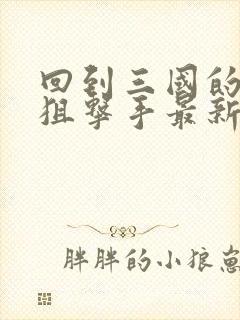 回到三國的
狙擊手最新
胖胖的小狼崽